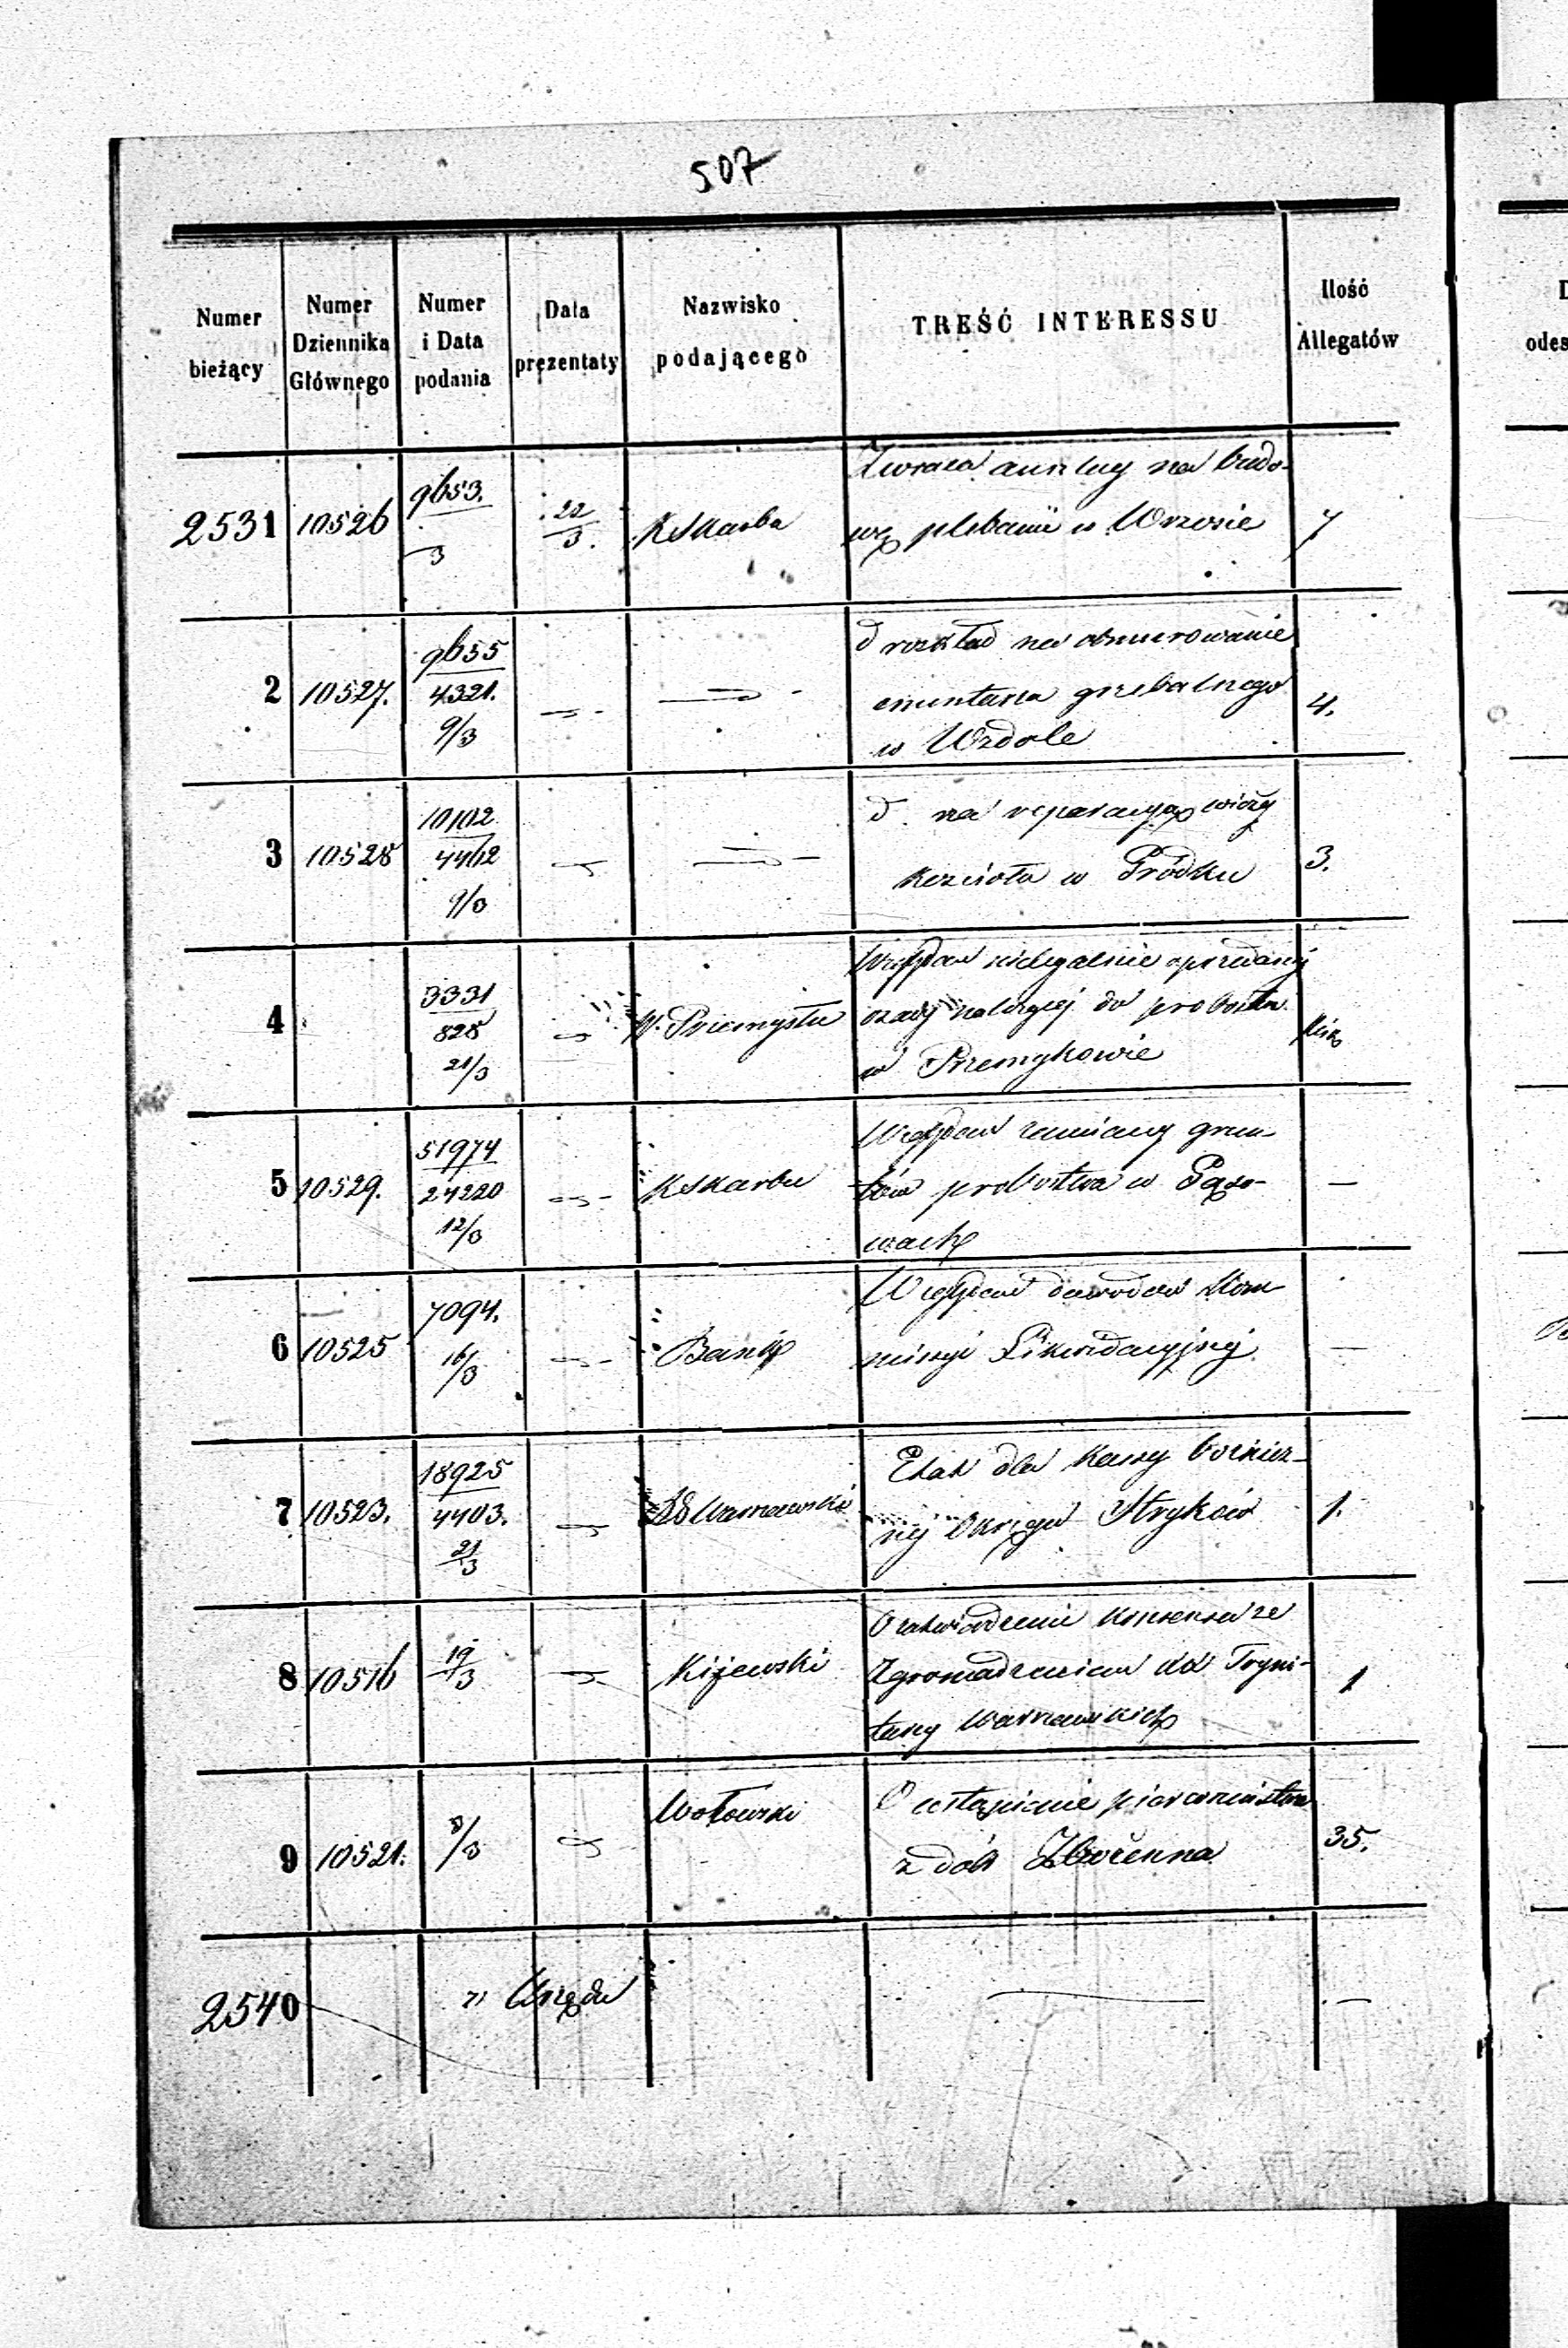 507
Numer bieżący | Numer Dziennika Głównego | Numer i Data podania | Data prezentaty | Nazwisko podającego | TREŚĆ INTERESSU | Ilość Allegatów
2531 | 10526 | 9653. /3 | 22/3. | K Skarbu | Zwraca na budo-
wę plebanii w Wrzosie | 7
2 | 10527. | 9655 4321. 9/3 | — | — | d rozkład na obmurowanie
cmentarza grzebalnego | 4.
w Wzdole
3 | 10528 | 10102 4462 9/3 | — | — | d. na reperacyją wieży
kościoła w Gródku | 3.
4 | 3331 828 21/3 | — | Przemysłu | Względem nielegalnie sprzedanej
osady należącej do probostw
w Przemykowie
5 | 10529. | 51974 24220 12/3 | — | K Skarbu | Względem zamiany grun-
tów probostwa w | —
wach
6 | 10525 | 7094. 16/3 | — | Bank | Względem dowodów Kom
missyi Likwidacyjnej | —
7 | 10523. | 18925 4403. 21/3 | — | Warszawski | Etat dla Kassy bóżnicz-
nej Okręgu Stryków | 1.
8 | 10516 | 19/3 | — | Kijewski | O zatwierdzenie konsensu ze
Zgromadzeniem Tryni-
tarzy Warszawskich | 1
9 | 10521. | 8/3 | — | Wołowski | O ustąpienie pierwszeństwa
z dóbr | 35.
2540 | z Urzędu | — | —
odes